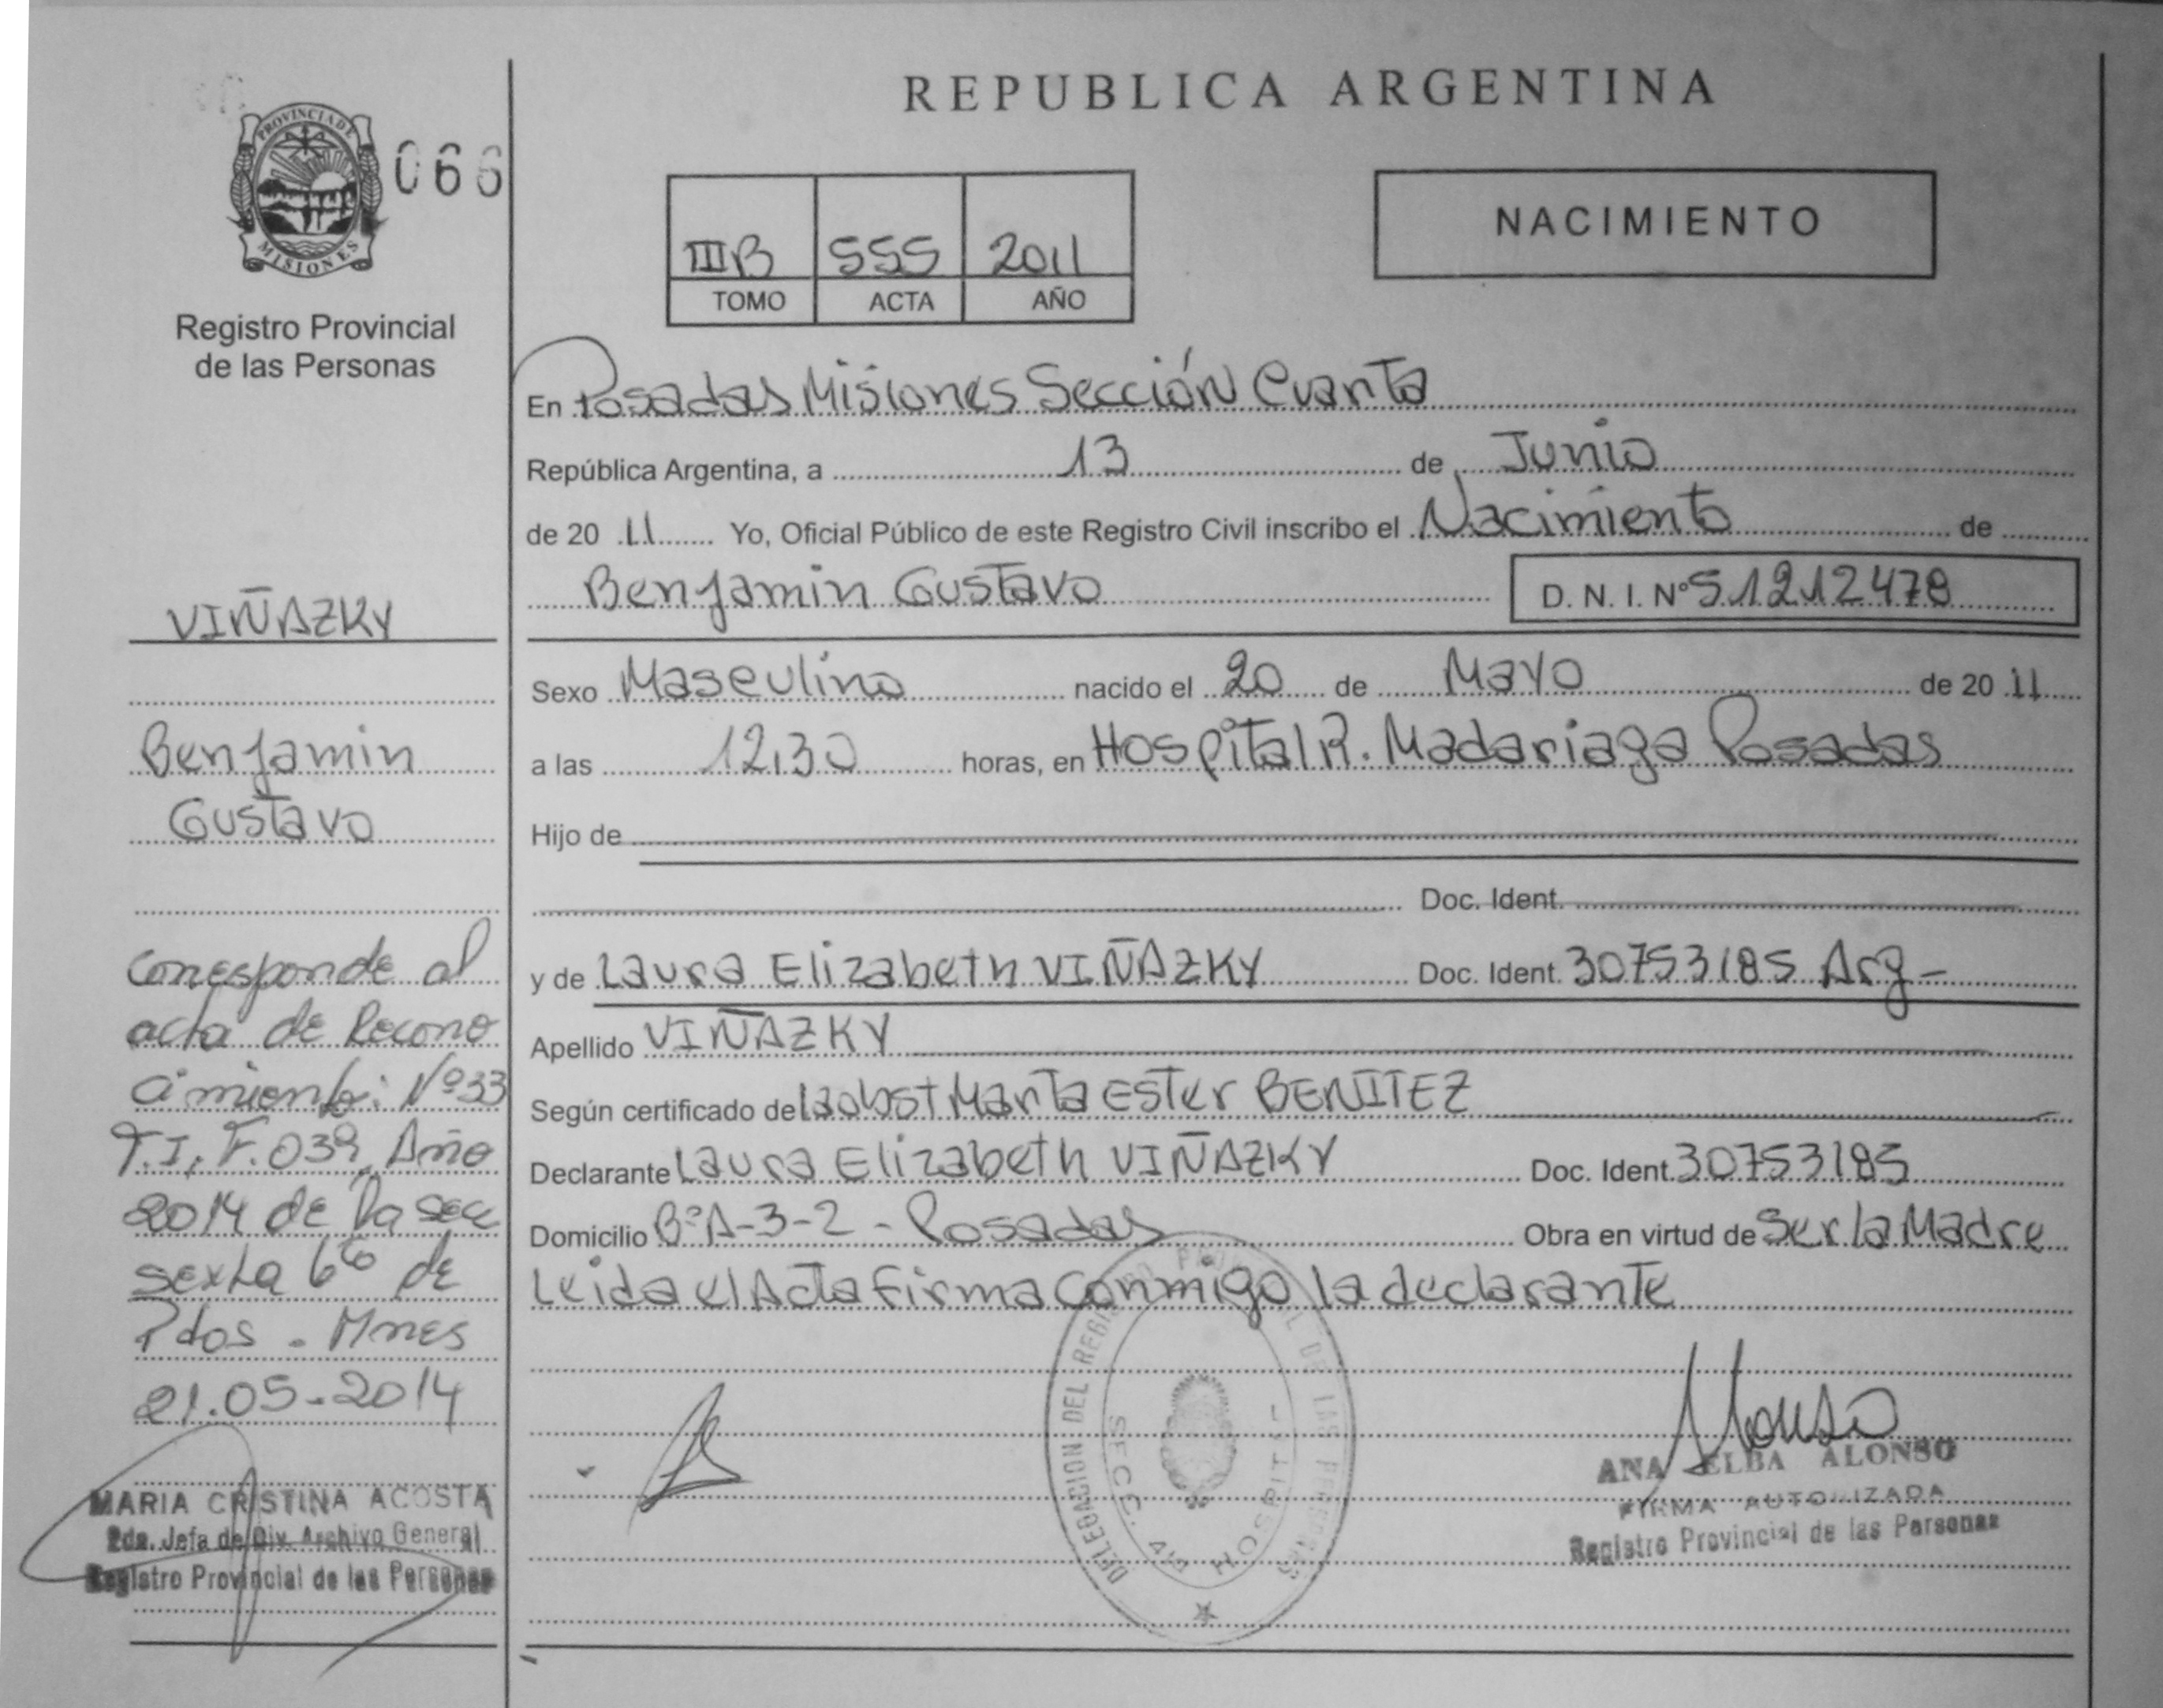 REPUBLICA ARGENTINA
PROVINCIA DE
MISIONES
066
Registro Provincial
de las Personas
IIIB 555 2011
TOMO ACTA AÑO
NACIMIENTO
En Posadas Misiones Sección Cuarta
República Argentina, a 13 de Junio
de 20 11 Yo, Oficial Público de este Registro Civil inscribo el Nacimiento de
Benjamin Gustavo D. N. I. Nº 51212478
Sexo Masculino nacido el 20 de Mayo de 20 11
a las 12,30 horas, en Hospital R. Madariaga Posadas
Hijo de
Doc. Ident.
y de Laura Elizabeth VIÑAZKY Doc. Ident. 30753185 Arg-
Apellido VIÑAZKY
Según certificado de la obst Marta Ester BENITEZ
Declarante Laura Elizabeth VIÑAZKY Doc. Ident. 30753185
Domicilio BºA-3-2 - Posadas Obra en virtud de Ser la Madre
Leida el Acta firma conmigo la declarante
VIÑAZKY
Benjamin
Gustavo
Corresponde al
acta de Recono
cimiento: Nº33
T.I, F.039, Año
2014 de la sec
sexta 6ta de
Pdos. Mnes
21.05-2014
MARIA CRISTINA ACOSTA
2da. Jefa de Div. Archivo General
Registro Provincial de las Personas
DELEGACION DEL REGISTRO PROVINCIAL DE LAS PERSONAS
SECC. 4ta HOSPITAL
Alonso
ANA ELBA ALONSO
FIRMA AUTORIZADA
Registro Provincial de las Personas